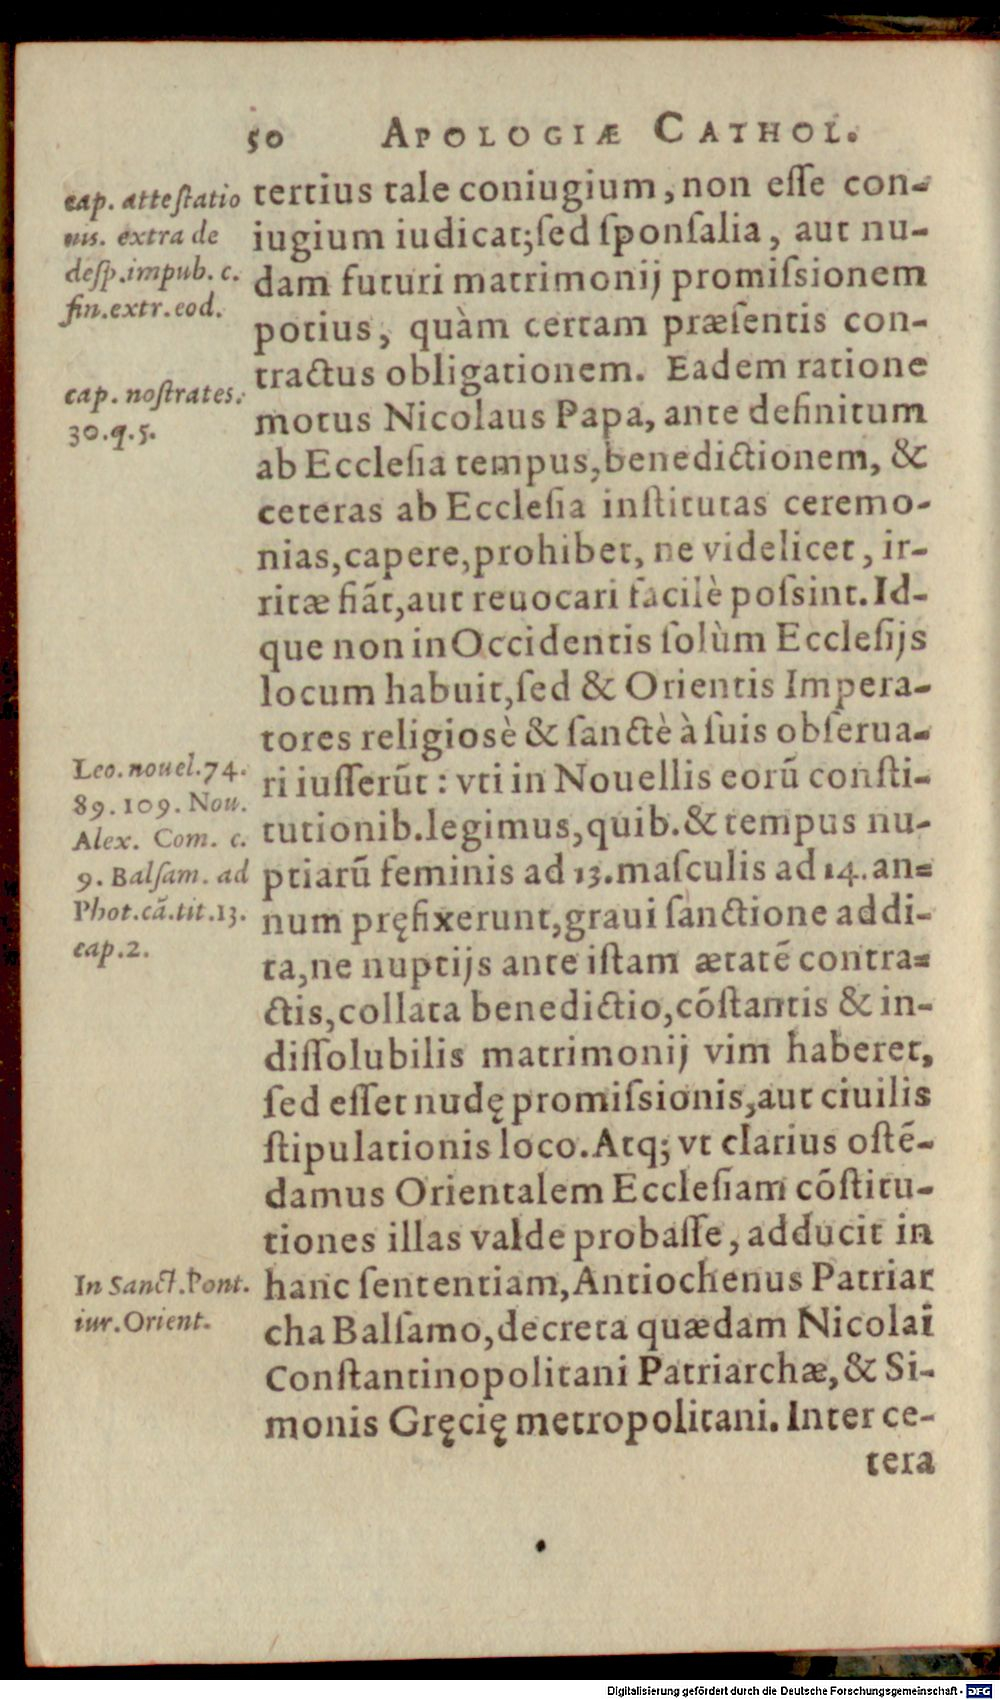 50 APOLOGIÆ CATHOL.
cap. atteſtatio
nis. extra de
deſp.impub. c.
fin.extr.eod.
cap. noſtrates.
30.q.5.
Leo.nouel.74.
89.109. Nou.
Alex. Com. c.
9. Balſam. ad
Phot.cã.tit.13.
cap.2.
In Sanct.Pont.
iur.Orient.
tertius tale coniugium, non eſſe con-
iugium iudicat; ſed ſponſalia, aut nu-
dam futuri matrimonij promiſsionem
potius, quàm certam præſentis con-
tractus obligationem. Eadem ratione
motus Nicolaus Papa, ante definitum
ab Eccleſia tempus, benedictionem, &
ceteras ab Eccleſia inſtitutas ceremo-
nias, capere, prohibet, ne videlicet, ir-
ritæ fiãt, aut reuocari facilè poſsint. Id-
que non in Occidentis ſolùm Eccleſijs
locum habuit, ſed & Orientis Impera-
tores religiosè & ſanctè à ſuis obſerua-
ri iuſſerũt: vti in Nouellis eorũ conſti-
tutionib. legimus, quib. & tempus nu-
ptiarũ feminis ad 13. maſculis ad 14. an-
num pręfixerunt, graui ſanctione addi-
ta, ne nuptijs ante iſtam ætatẽ contra-
ctis, collata benedictio, cõſtantis & in-
diſſolubilis matrimonij vim haberet,
ſed eſſet nudę promiſsionis, aut ciuilis
ſtipulationis loco. Atq; vt clarius oſtẽ-
damus Orientalem Eccleſiam cõſtitu-
tiones illas valde probaſſe, adducit in
hanc ſententiam, Antiochenus Patriar
cha Balſamo, decreta quædam Nicolai
Conſtantinopolitani Patriarchæ, & Si-
monis Gręcię metropolitani. Inter ce-
tera
Digitalisierung gefördert durch die Deutsche Forschungsgemeinschaft - DFG